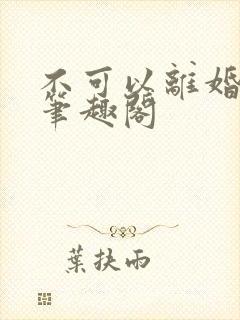 不可以離婚
筆趣閣
葉扶雨